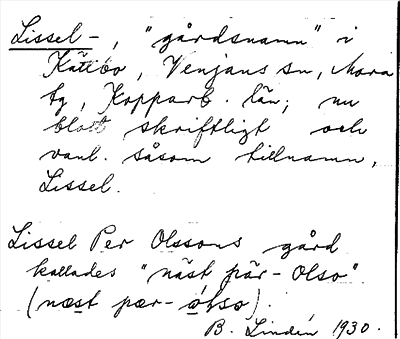 Lissel-, "gårdsnamn" i
Kättbo, Venjans sn, Mora
tg, Kopparb. län; nu
blott skriftligt och
vanl. såsom tillnamn,
Lissel.
Lissel Per Olssons gård
kallades "näst pär-Olso"
(næst pær-olso).
B. Lindén 1930.